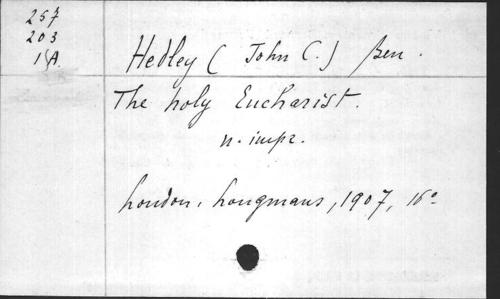 257
203
1 A.
Hedley ( John C.) Ben.
The holy Eucharist.
n. impr.
London, Longmans, 1907, 16º